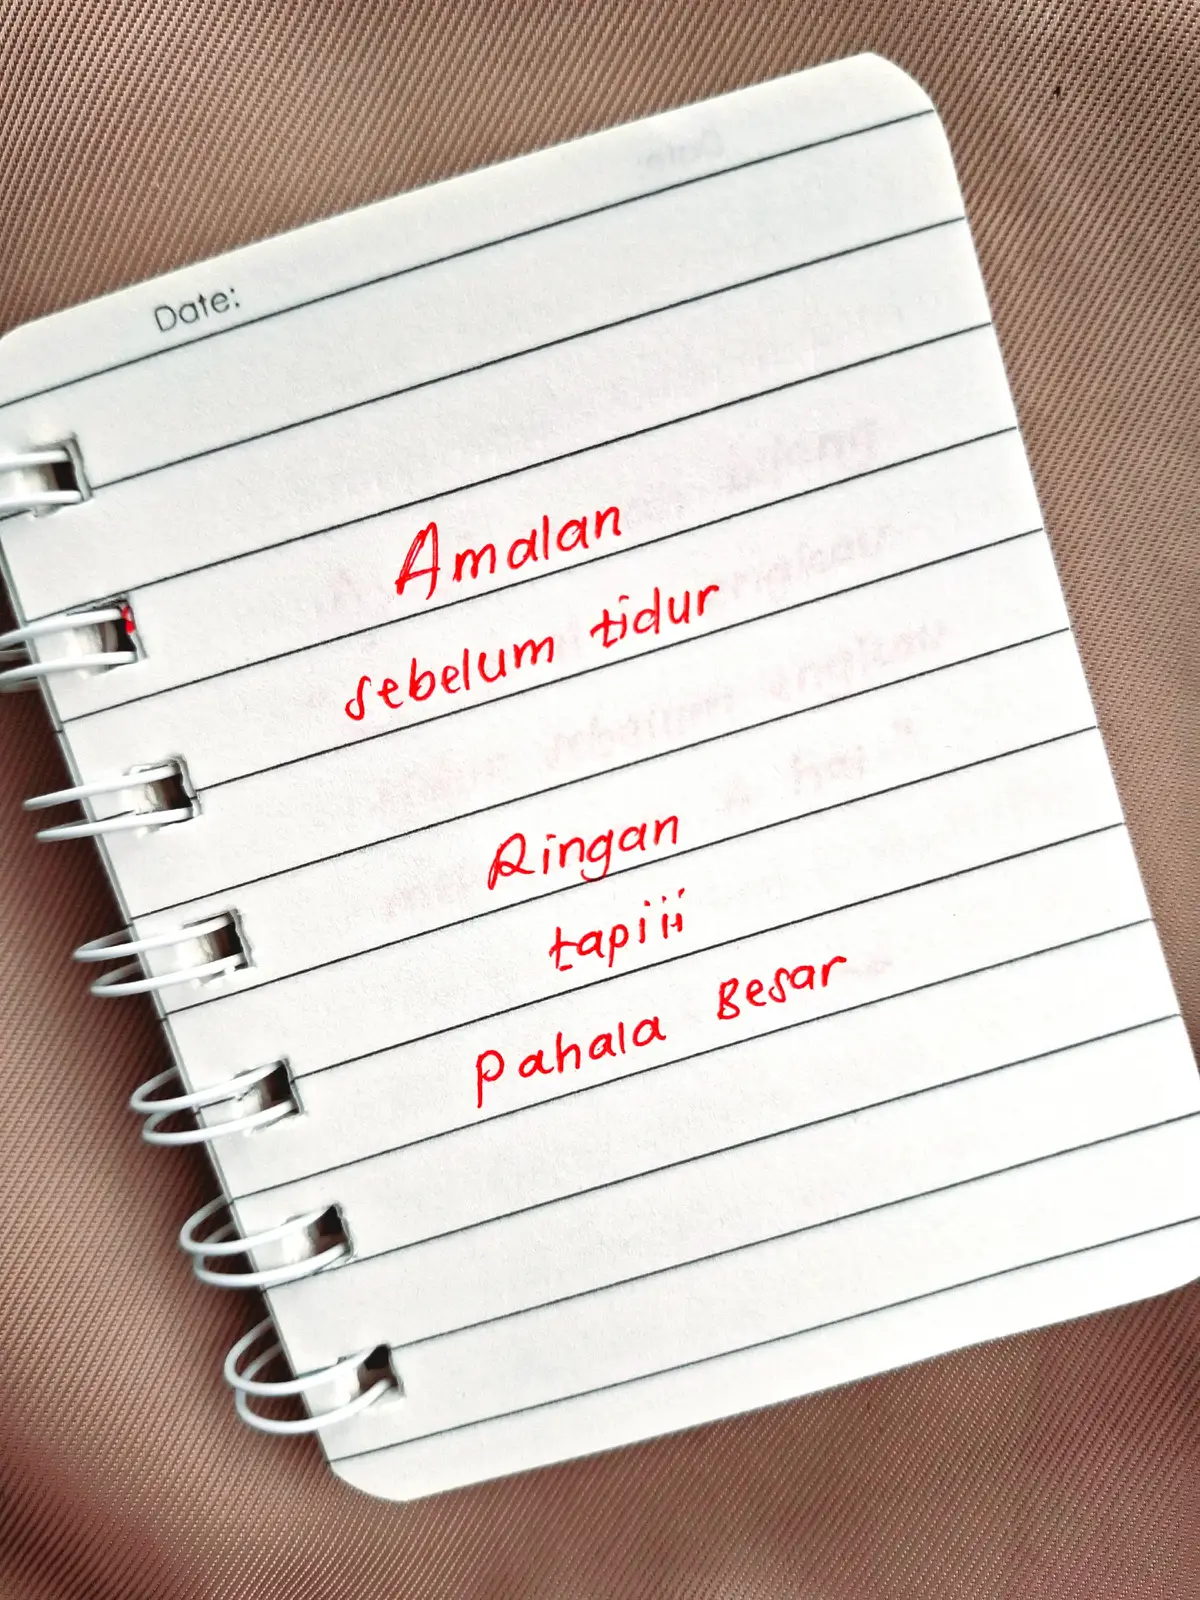 Date:
Amalan
sebelum tidur
Ringan
tapiii
pahala Besar